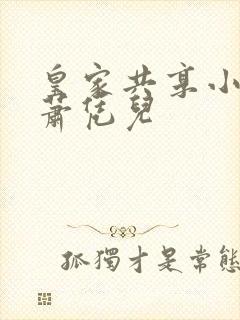 皇家共享小
蕭恁兒
孤獨才是常態